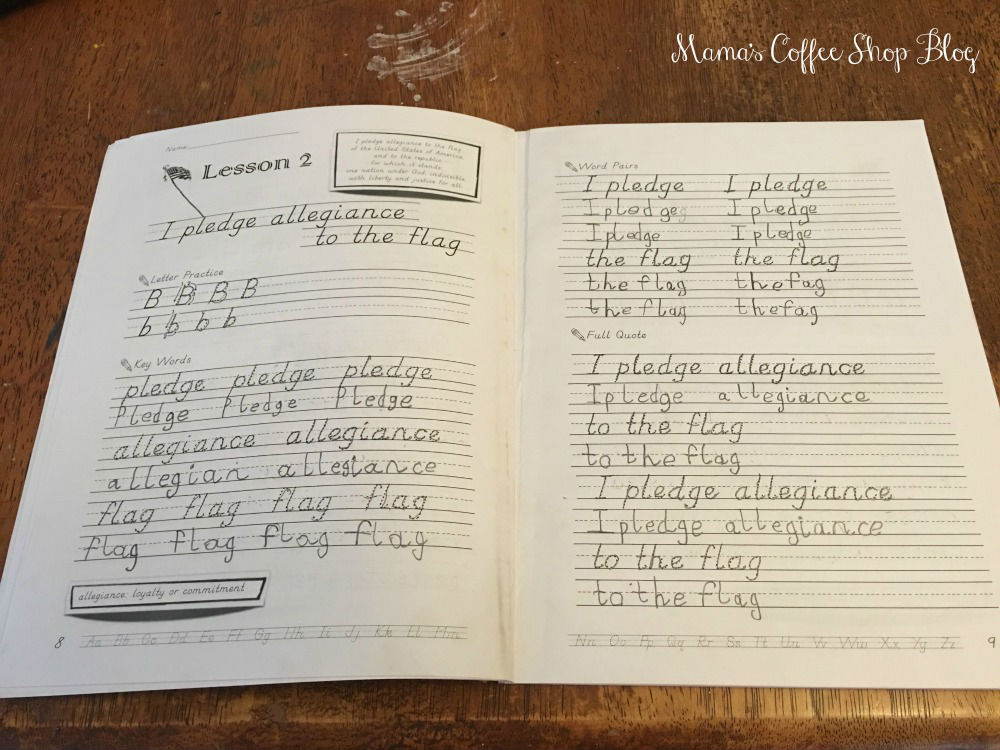 Mama's Coffee Shop Blog
Name
Lesson 2
I pledge allegiance to the flag
of the United States of America,
and to the republic
for which it stands:
one nation under God, indivisible,
with liberty and justice for all.
I pledge allegiance
to the flag
Letter Practice
B B B B
b b b b
Key Words
pledge pledge pledge
Pledge Pledge Pledge
allegiance allegiance
allegian allegiance
flag flag flag flag
flag flag flag flag
allegiance: loyalty or commitment
8
Aa Bb Cc Dd Ee Ff Gg Hh Ii Jj Kk Ll Mm
Word Pairs
I pledge I pledge
I pledge I pledge
I pledge I pledge
the flag the flag
the flag the fag
the flag the fag
Full Quote
I pledge allegiance
I pledge allegiance
to the flag
to the flag
I pledge allegiance
I pledge allegiance
to the flag
to the flag
Nn Oo Pp Qq Rr Ss Tt Uu Vv Ww Xx Yy Zz
9